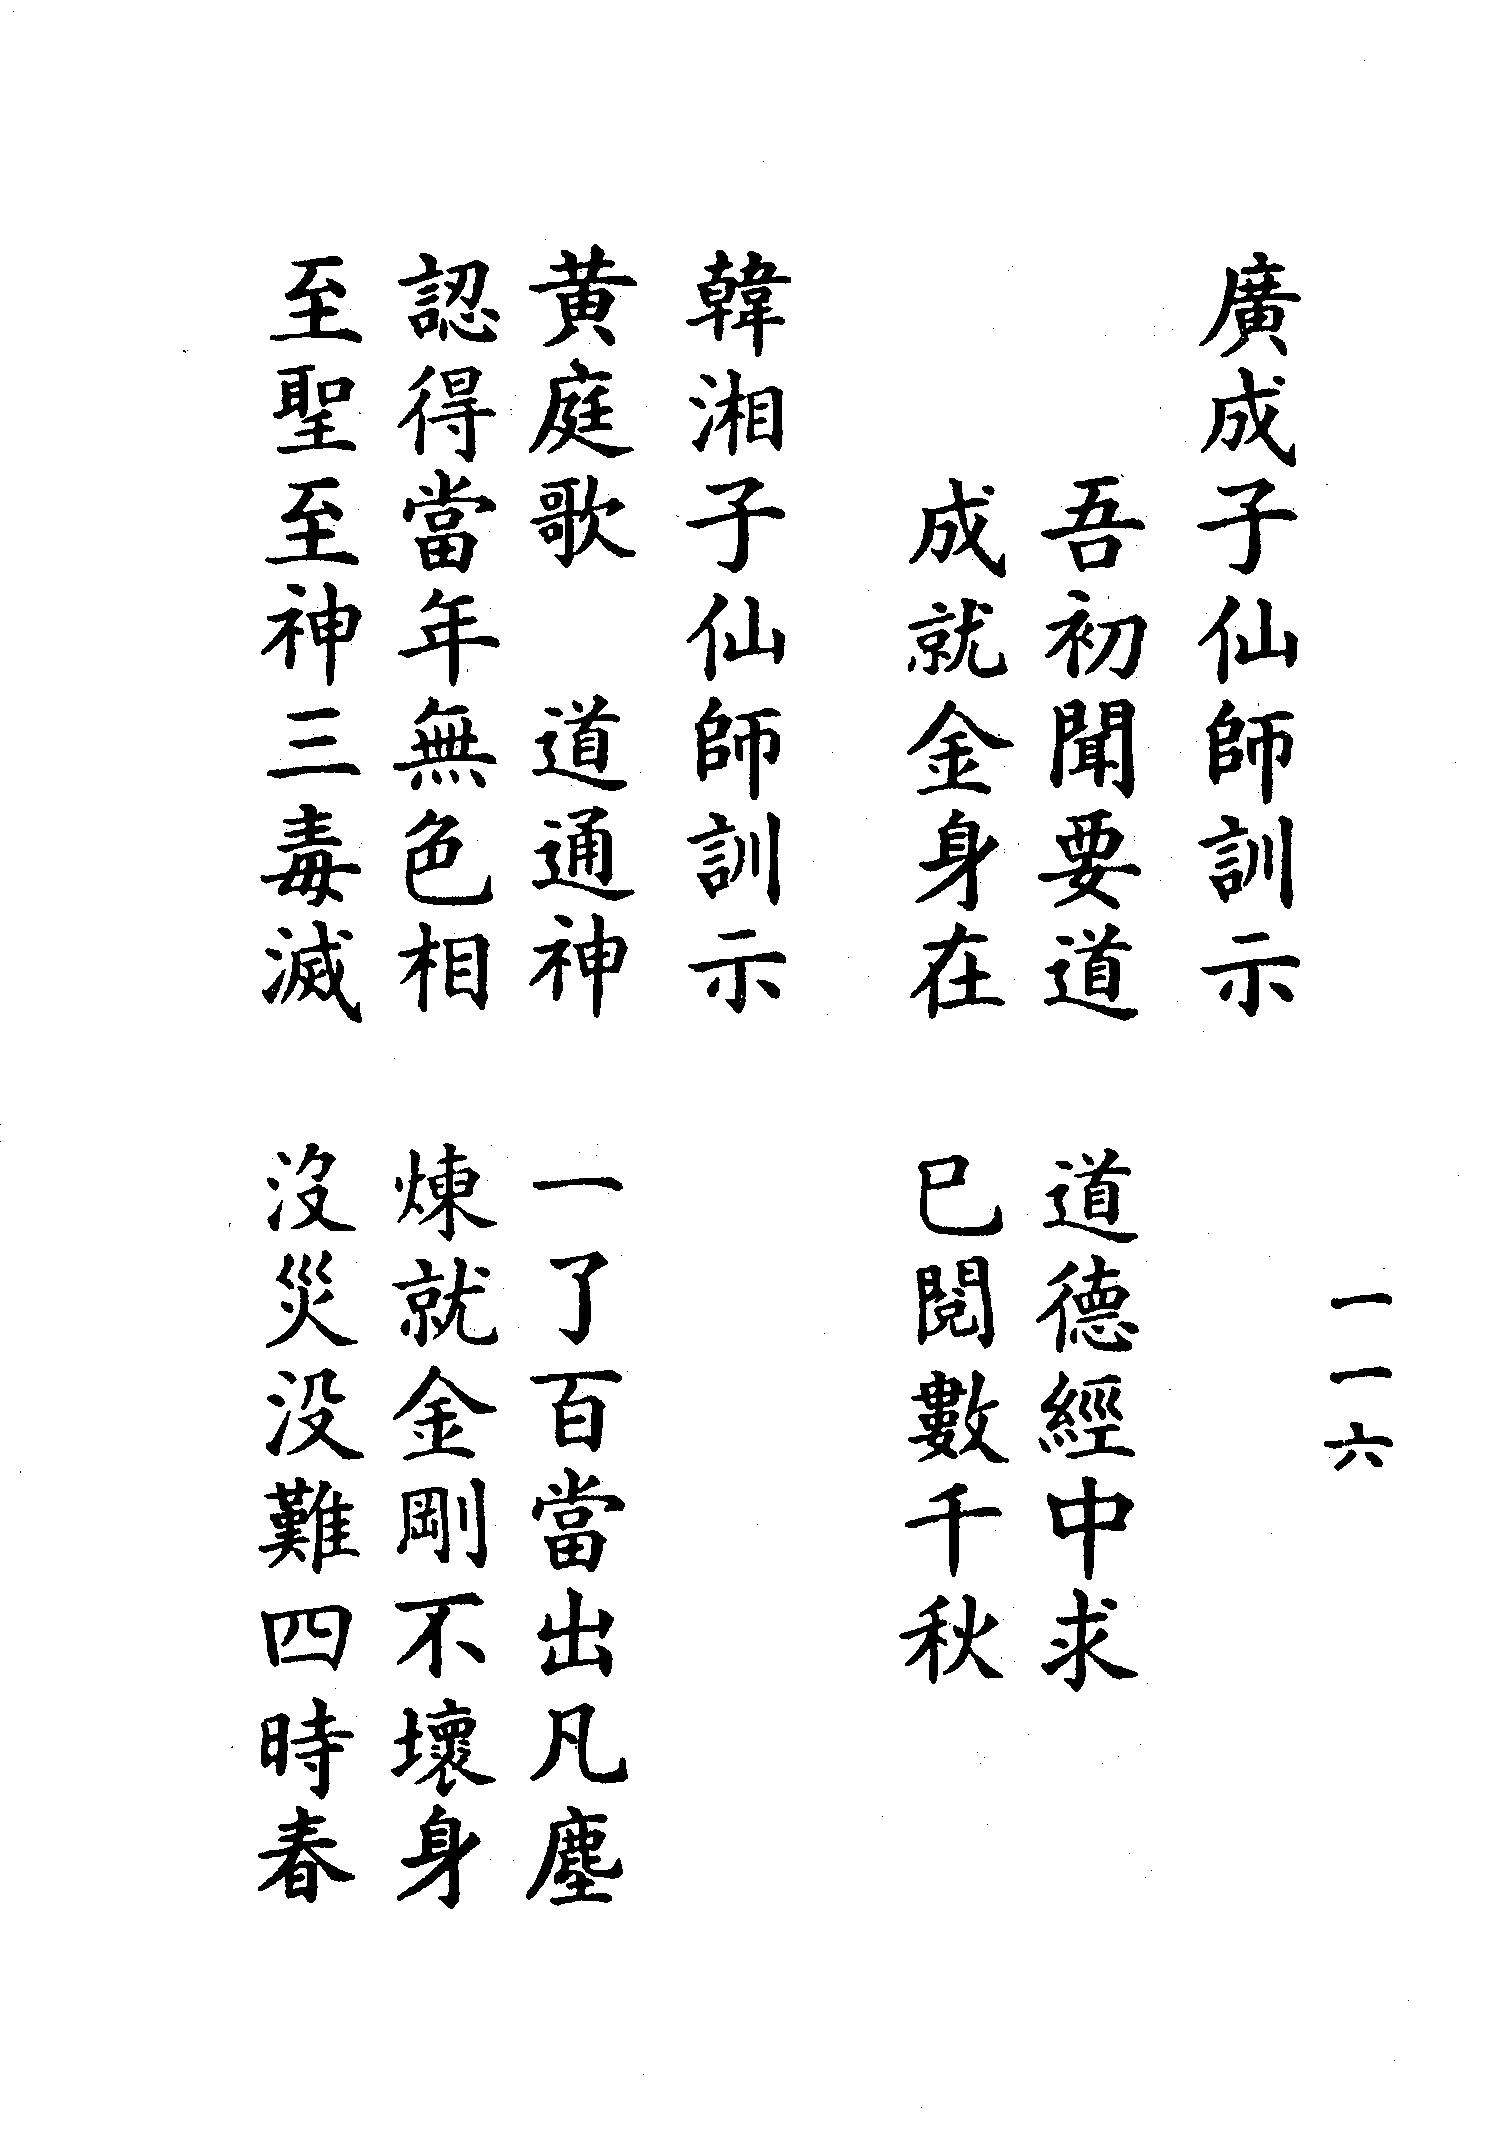 一一六
廣成子仙師訓示
吾初聞要道　道德經中求
成就金身在　已閱數千秋
韓湘子仙師訓示
黃庭歌　道通神　一了百當出凡塵
認得當年無色相　煉就金剛不壞身
至聖至神三毒滅　沒災沒難四時春